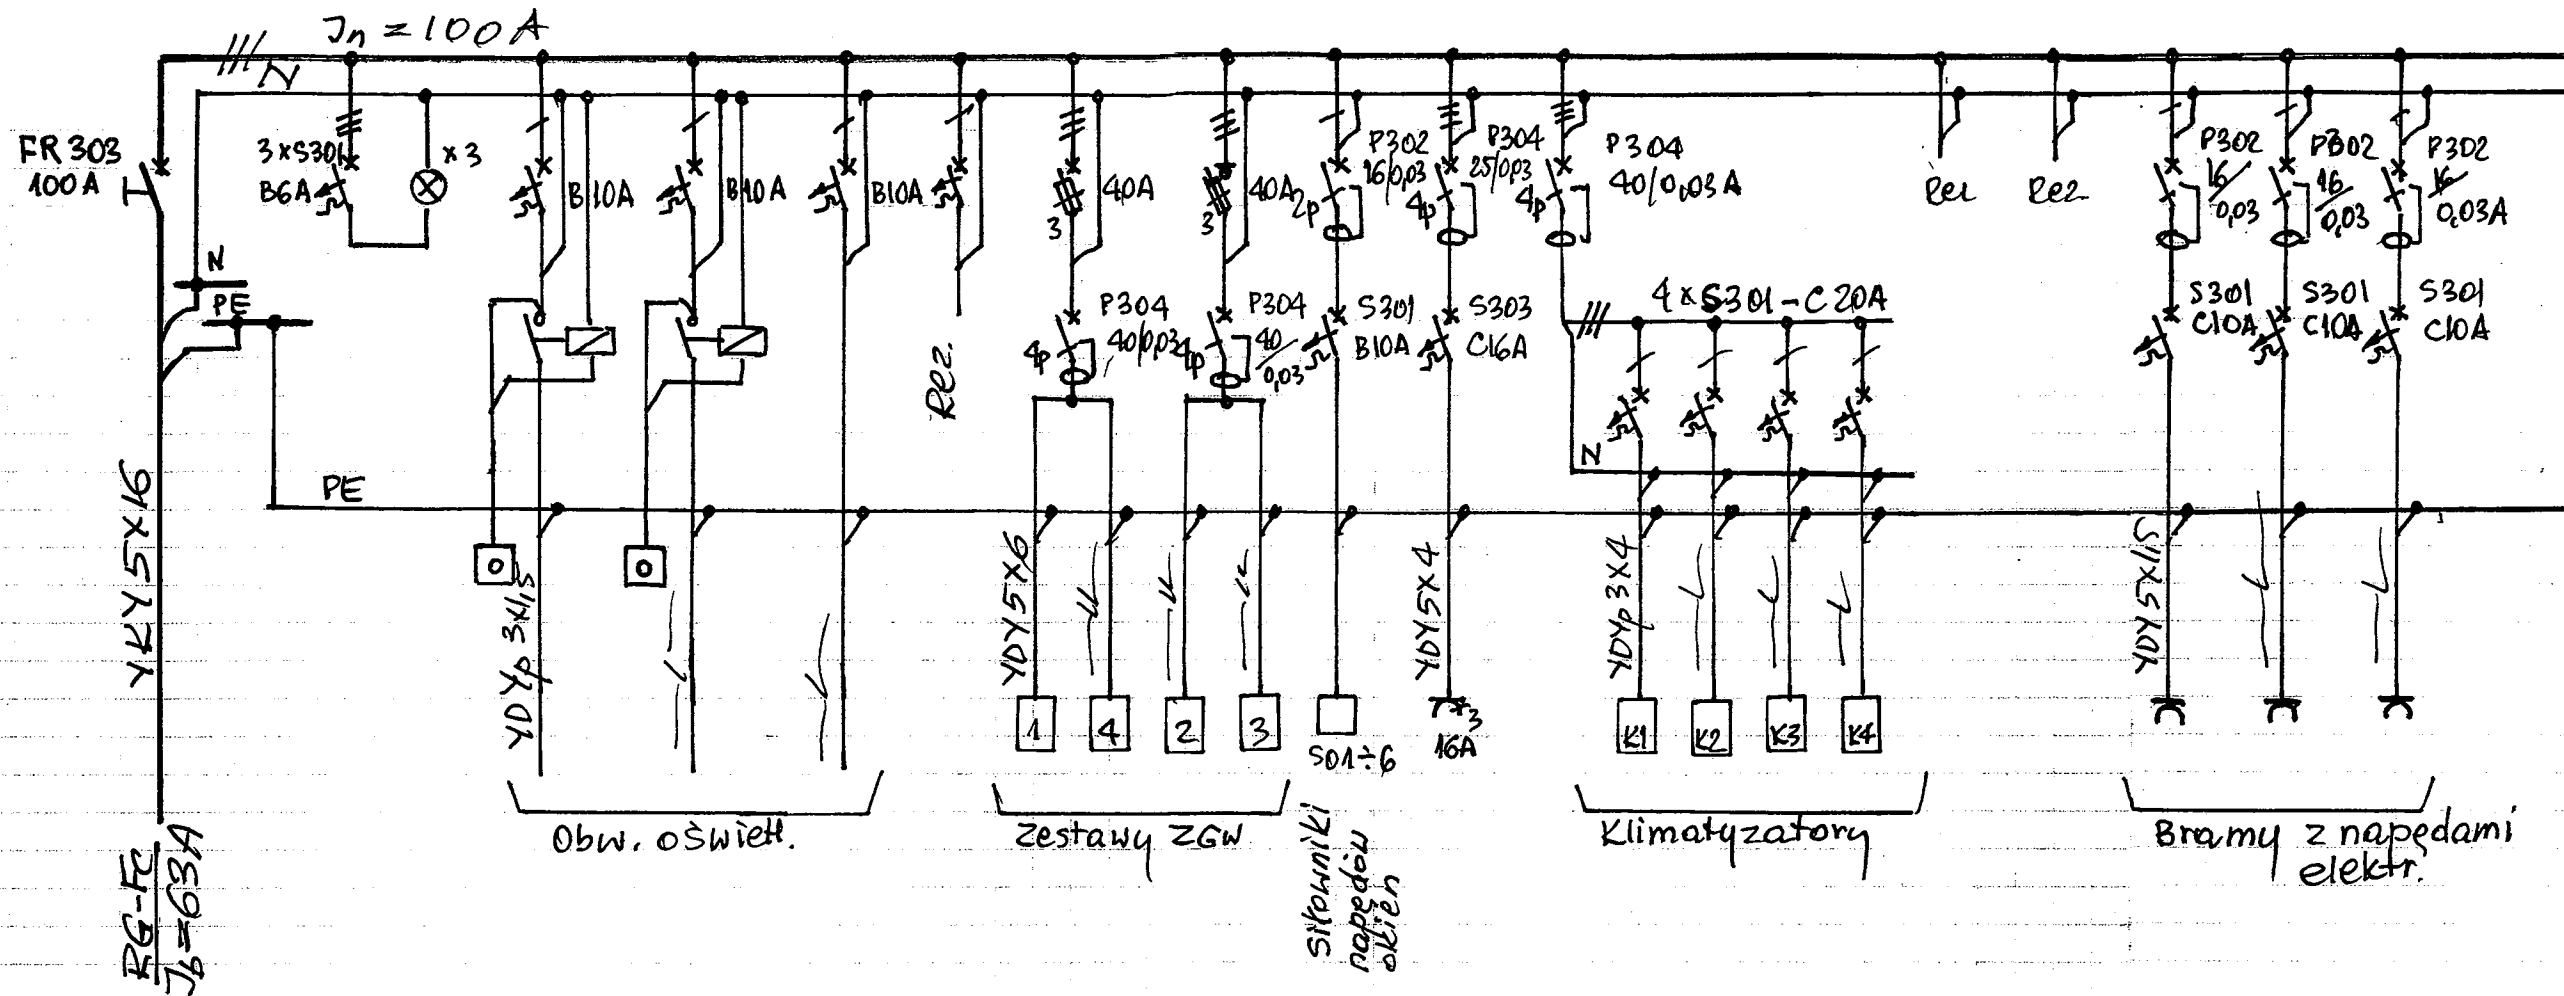 Jn = 100A
N
FR 303
100 A
3xS301
B6A
x3
B10A
B10A
B10A
40A
40A
P302
16/0,03
2p
P304
25/0,03
4p
P304
40/0,03A
4p
Rez
Rez
P302
16/0,03
P302
16/0,03
P302
16/0,03A
N
PE
3
3
Rez.
P304
40/0,03
4p
P304
40/0,03
4p
S301
B10A
S303
C16A
4xS301-C20A
S301
C10A
S301
C10A
S301
C10A
N
PE
YKY5x16
YDYp 3x1,5
YDY5x6
YDY5x4
YDYp 3x4
YDY5x1,5
1
4
2
3
S01÷6
x3
16A
K1
K2
K3
K4
Obw. oświetl.
Zestawy ZGW
Siłowniki
napędów
okien
Klimatyzatory
Bramy z napędami
elektr.
RG-FC
Jb=63A